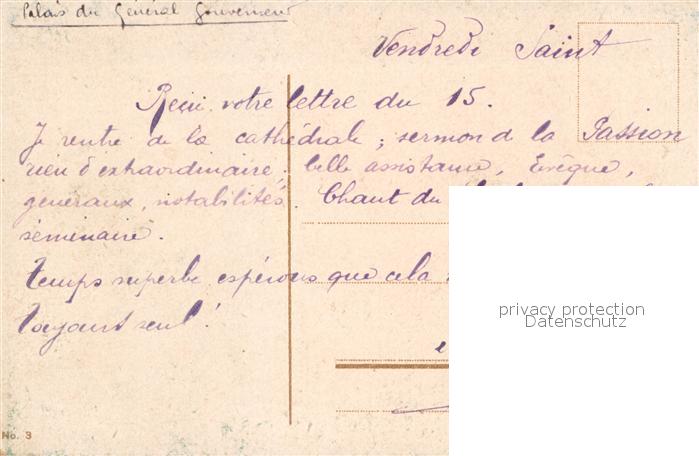 Palais du Général Gouverneur
Vendredi Saint
Reçu votre lettre du 15.
Je rentre de la cathédrale ; sermon d la Passion
rien d'extraordinaire ; belle assistance, Evêque,
généraux, notabilités. Chant du
séminaire.
Temps superbe espérons que cela
seul !
privacy protection
Datenschutz
No. 3